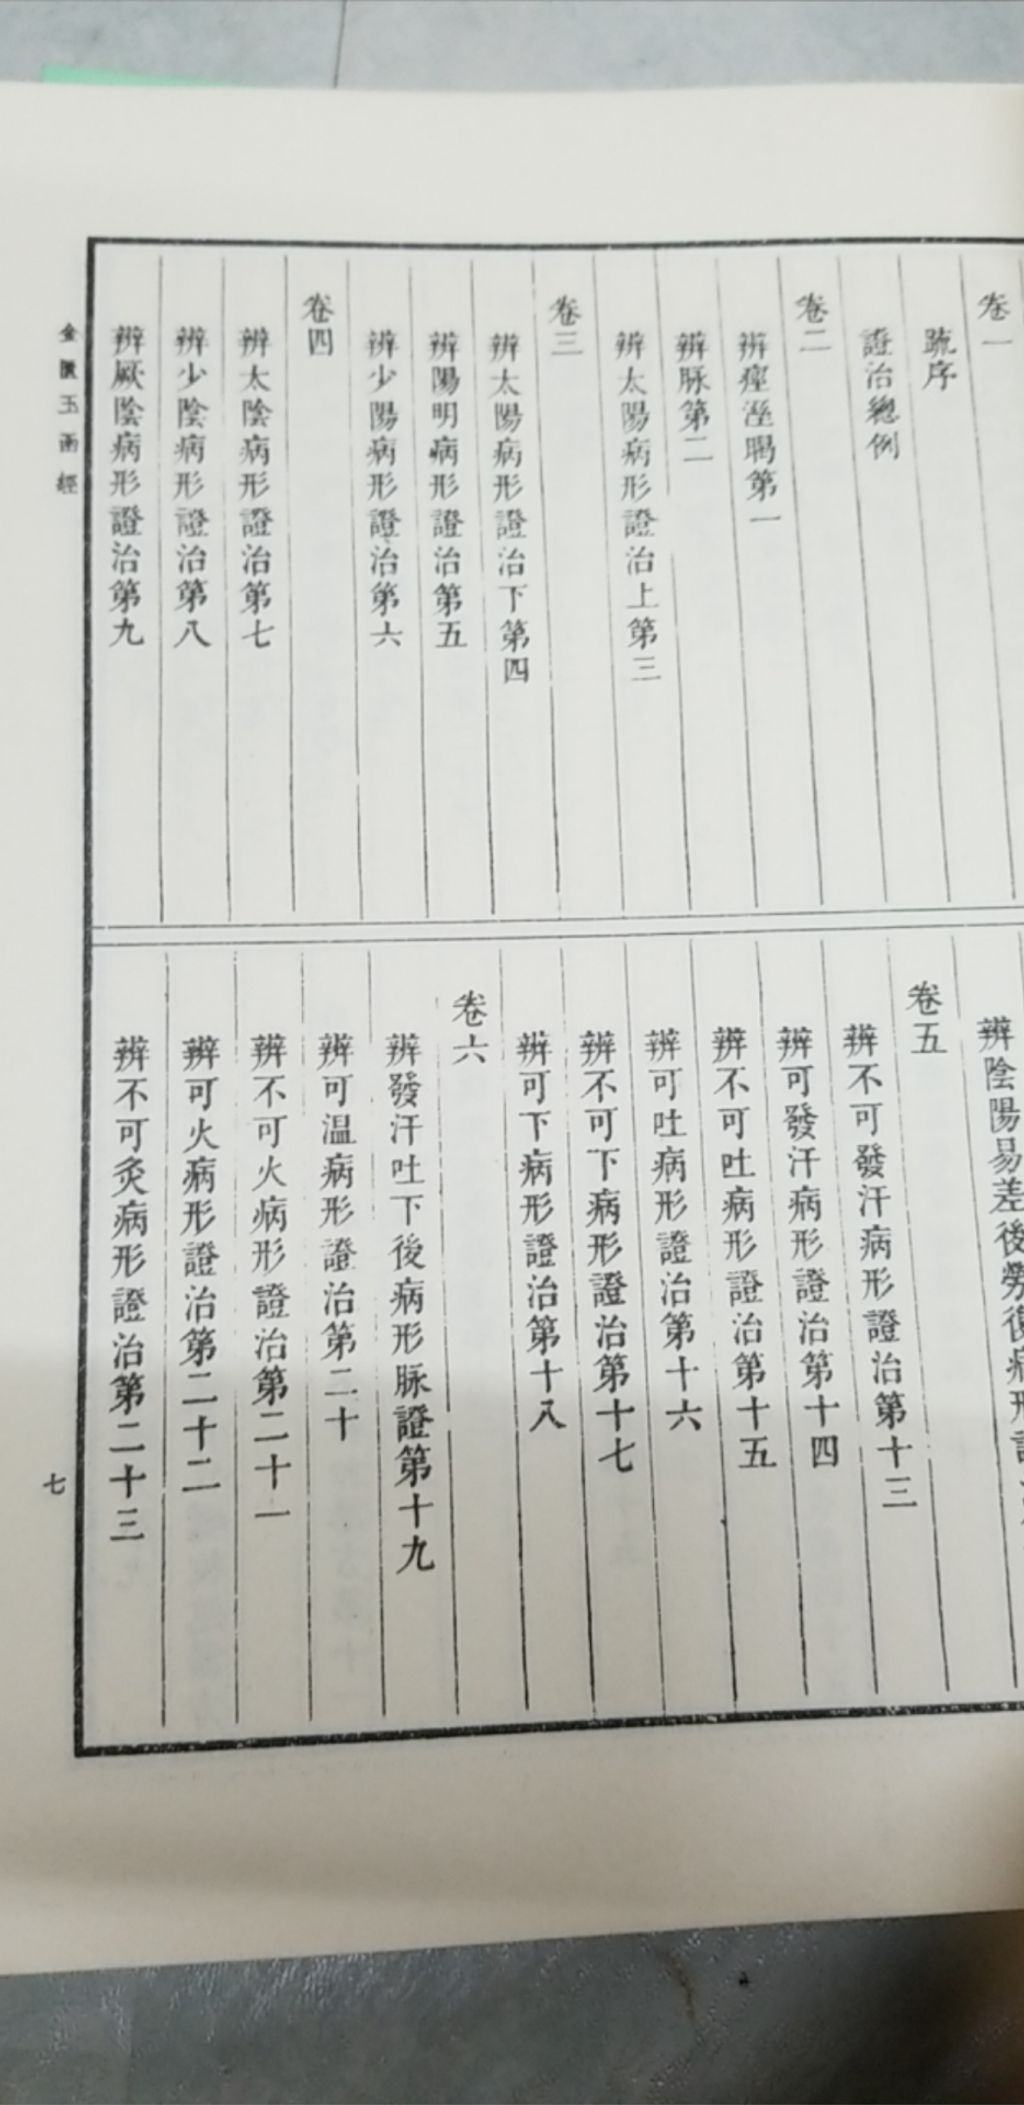 卷一
疏序
證治總例
卷二
辨痙溼暍第一
辨脉第二
辨太陽病形證治上第三
卷三
辨太陽病形證治下第四
辨陽明病形證治第五
辨少陽病形證治第六
卷四
辨太陰病形證治第七
辨少陰病形證治第八
辨厥陰病形證治第九
辨陰陽易差後勞復病形證
卷五
辨不可發汗病形證治第十三
辨可發汗病形證治第十四
辨不可吐病形證治第十五
辨可吐病形證治第十六
辨不可下病形證治第十七
辨可下病形證治第十八
卷六
辨發汗吐下後病形脉證第十九
辨可温病形證治第二十
辨不可火病形證治第二十一
辨可火病形證治第二十二
辨不可灸病形證治第二十三
金匱玉函經
七